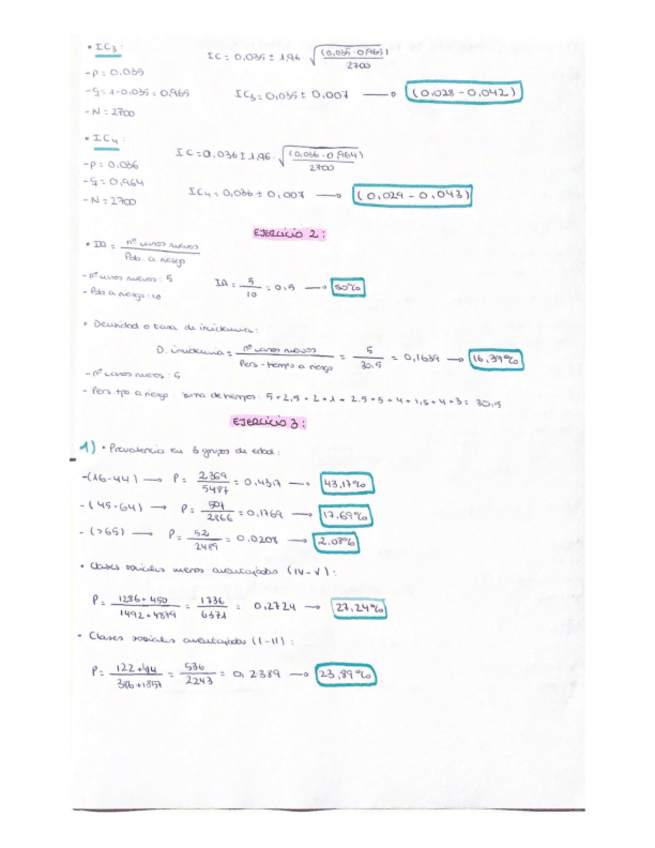 • IC3:
IC = 0,035 ± 1,96 √(0,035 · 0,965) / 2700
- p = 0,035
- q = 1 - 0,035 = 0,965
IC3 = 0,035 ± 0,007 → (0,028 - 0,042)
- N = 2700
• IC4:
IC = 0,036 ± 1,96 · √(0,036 · 0,964) / 2700
- p = 0,036
- q = 0,964
IC4 = 0,036 ± 0,007 → (0,029 - 0,043)
- N = 2700
EJERCICIO 2:
• IA = nº casos nuevos / Pob. a riesgo
- nº casos nuevos: 5
IA = 5/10 = 0,5 → 50%
- Pob a riesgo: 10
• Densidad o tasa de incidencia:
D. incidencia = nº casos nuevos / Pers - tiempo a riesgo = 5 / 30,5 = 0,1639 → 16,39%
- nº casos nuevos: 5
- Pers. tpo a riesgo: suma de tiempos: 5 + 2,5 + 2 + 1 + 2,5 + 5 + 4 + 1,5 + 4 + 3 = 30,5
EJERCICIO 3:
1) • Prevalencia en 3 grupos de edad:
- (16-44) → P = 2369 / 5487 = 0,4317 → 43,17%
- (45-64) → P = 507 / 2866 = 0,1769 → 17,69%
- (>65) → P = 52 / 2489 = 0,0208 → 2,08%
• Clases sociales menos aventajadas (IV - V):
P = 1286 + 450 / 1492 + 4879 = 1736 / 6371 = 0,2724 → 27,24%
• Clases sociales aventajadas (I - II):
P = 122 + 414 / 386 + 1857 = 536 / 2243 = 0,2389 → 23,89%